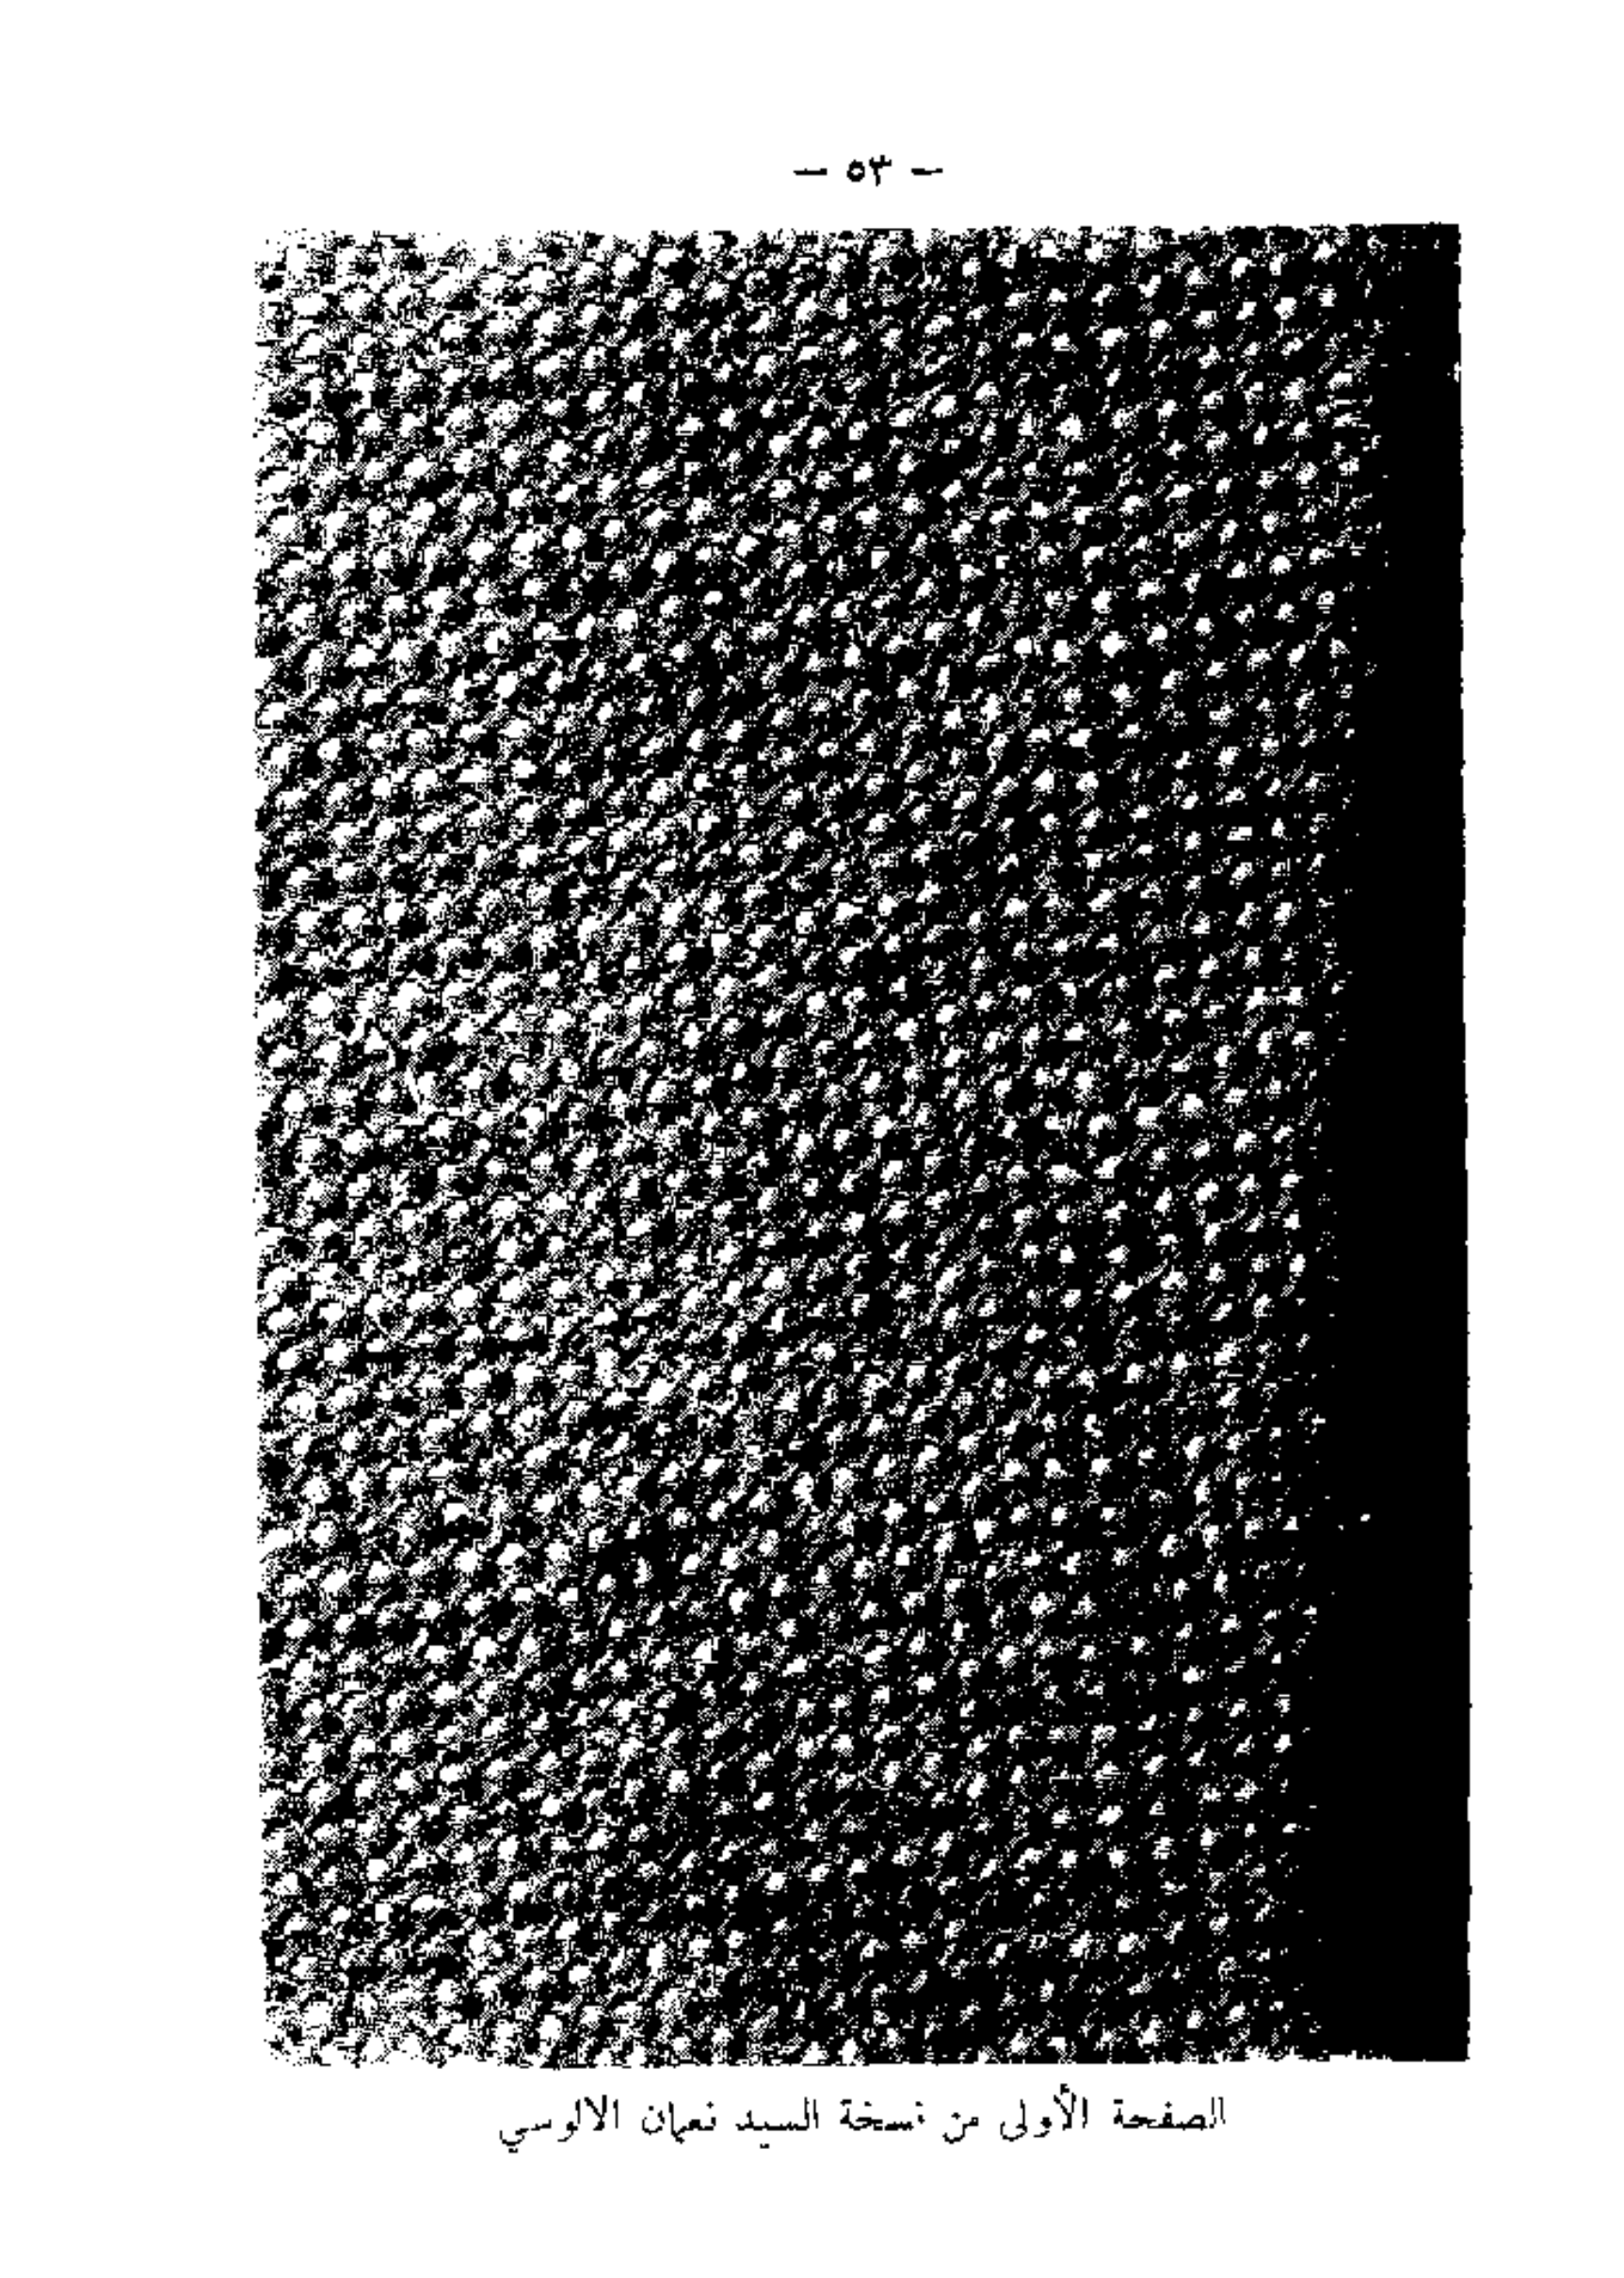 — ٥٣ —
الصفحة الأولى من نسخة السيد نعمان الالوسي